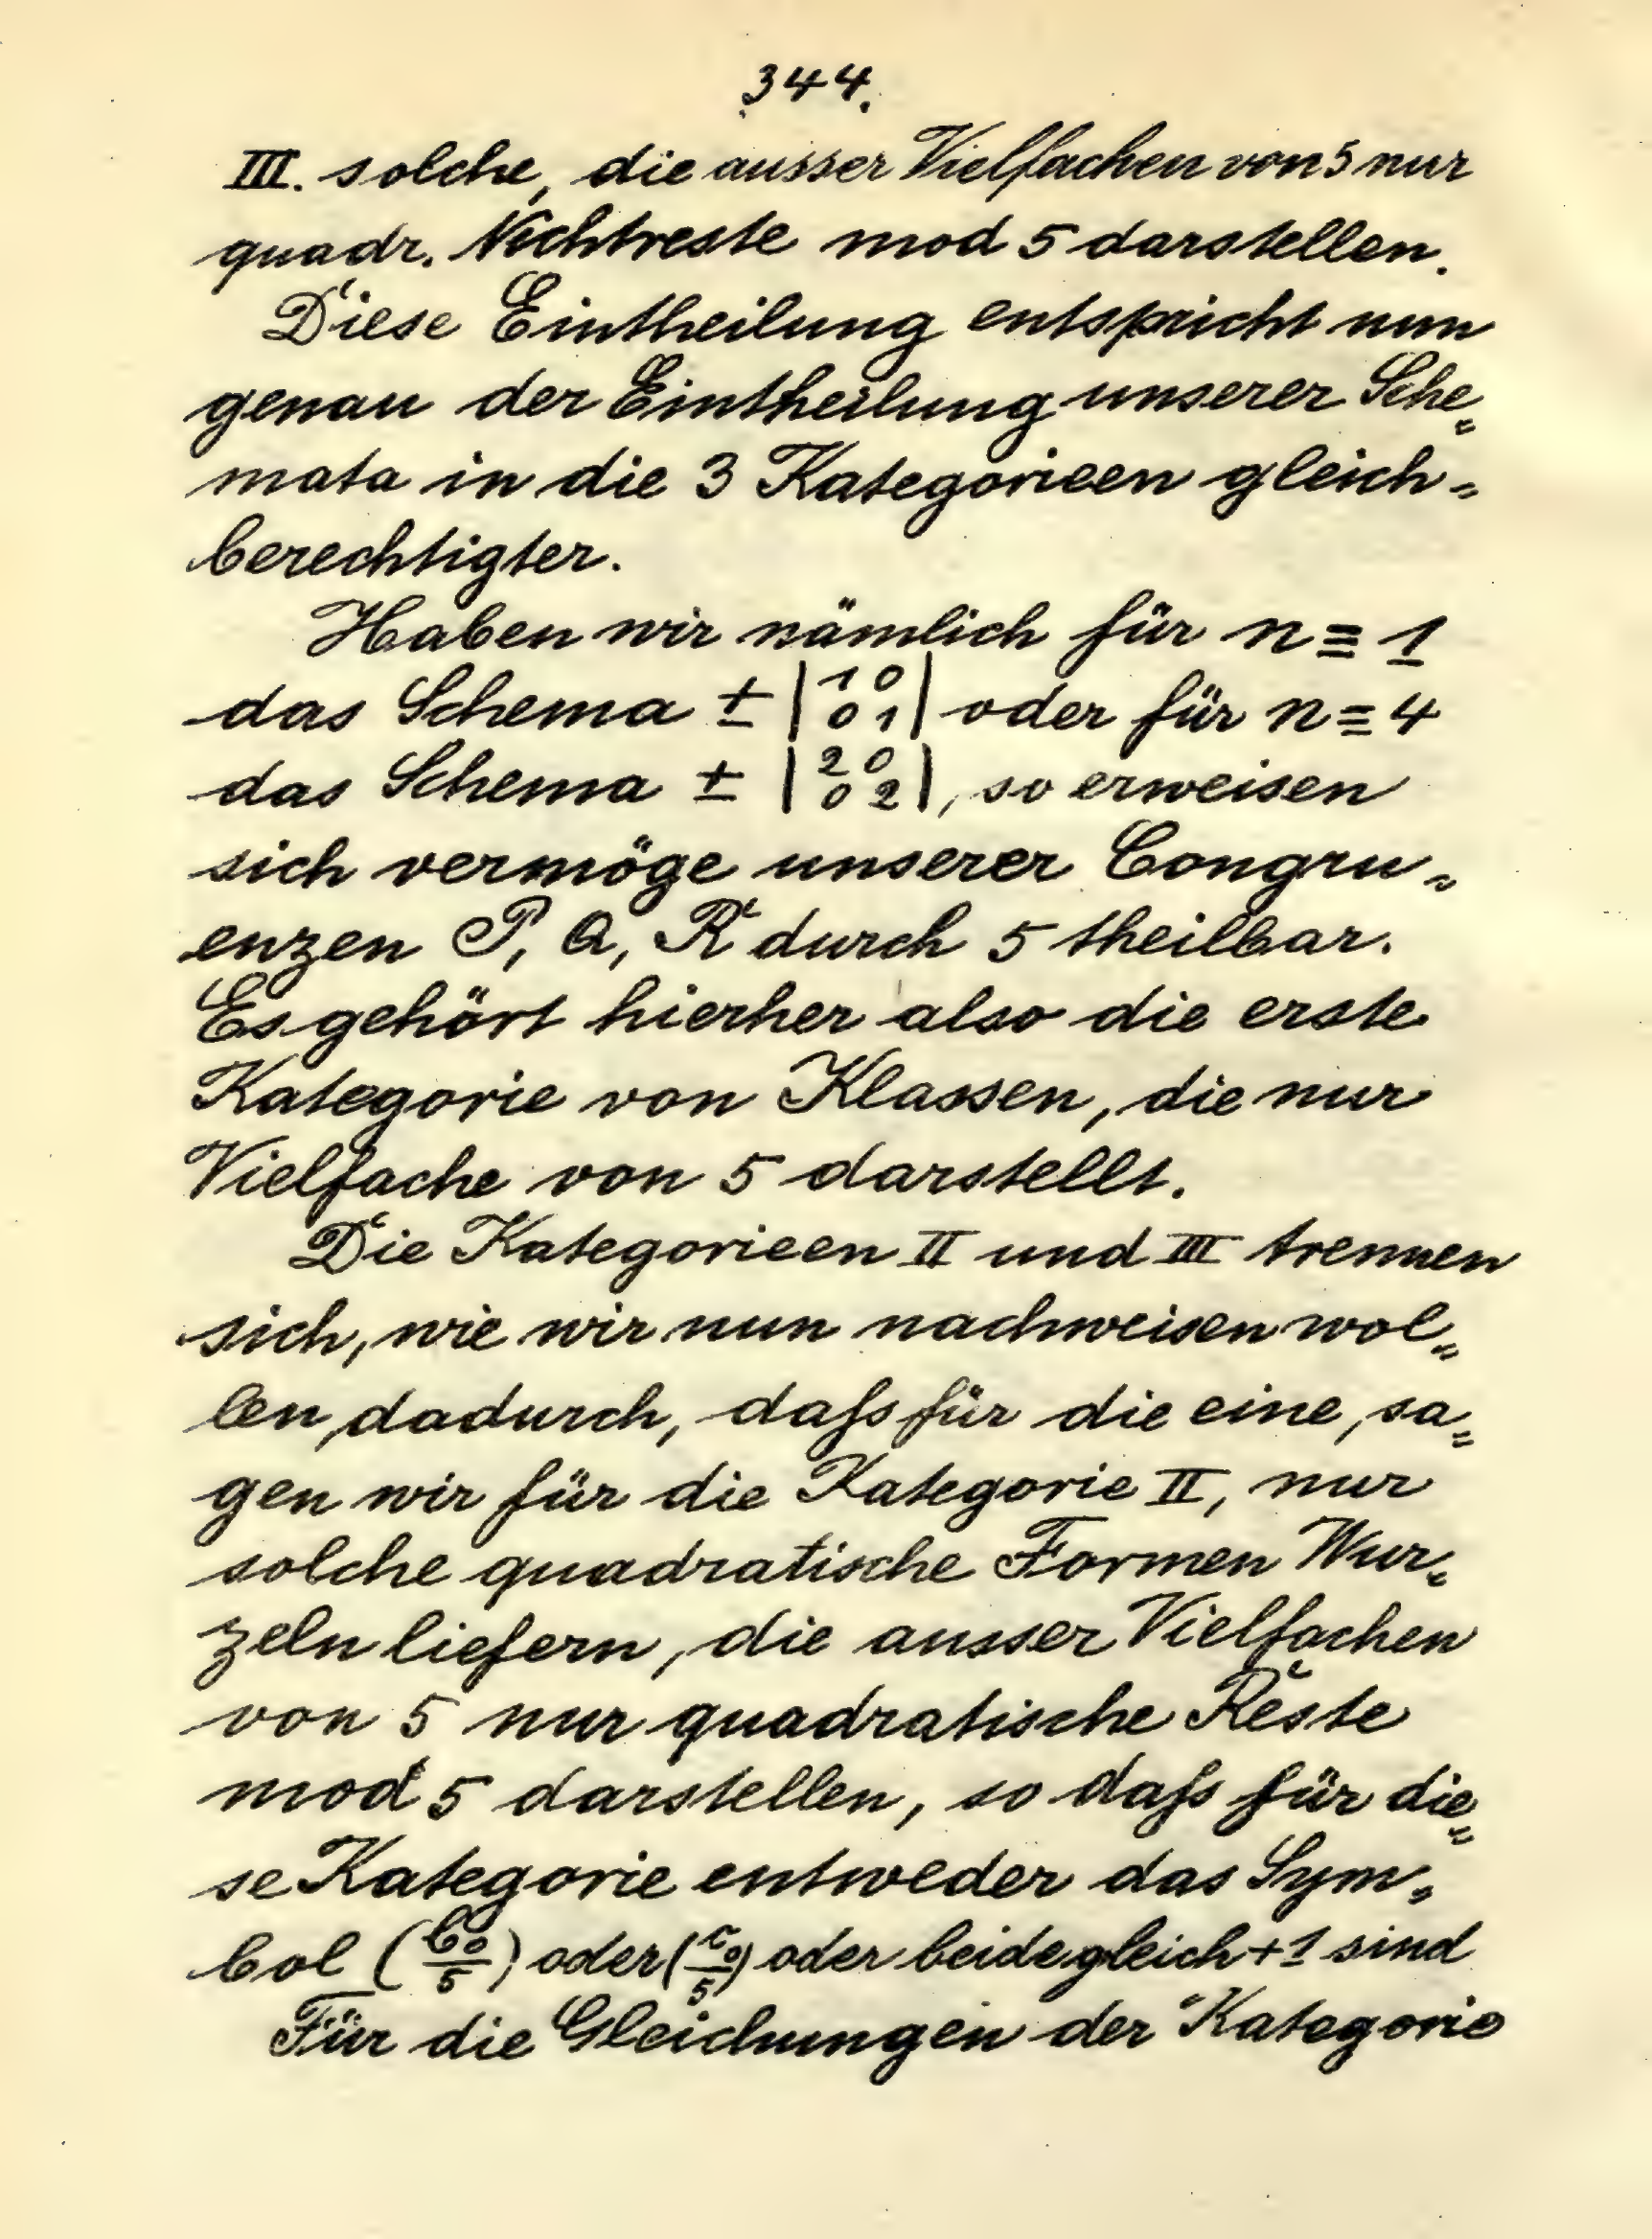 344.
III. solche, die ausser Vielfachen von 5 nur
quadr. Nichtreste mod 5 darstellen.
Diese Eintheilung entspricht nun
genau der Eintheilung unserer Sche=
mata in die 3 Kategorieen gleich=
berechtigter.
Haben wir nämlich für n ≡ 1
das Schema ± |1 0 / 0 1| oder für n ≡ 4
das Schema ± |2 0 / 0 2|, so erweisen
sich vermöge unserer Congru=
enzen P, Q, R durch 5 theilbar.
Es gehört hierher also die erste
Kategorie von Klassen, die nur
Vielfache von 5 darstellt.
Die Kategorieen II und III trennen
sich, wie wir nun nachweisen wol=
len, dadurch, daſs für die eine, sa=
gen wir für die Kategorie II, nur
solche quadratische Formen Wur=
zeln liefern, die ausser Vielfachen
von 5 nur quadratische Reste
mod 5 darstellen, so daſs für die=
se Kategorie entweder das Sym=
bol (b₀/5) oder (c₀/5) oder beide gleich +1 sind
Für die Gleichungen der Kategorie